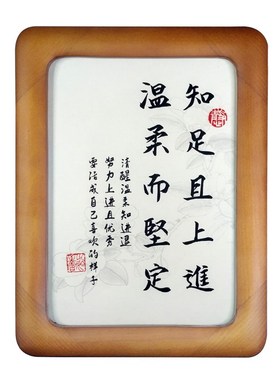 知足且上進
温柔而堅定
清醒温柔知進退
努力上進且优秀
要活成自己喜欢的樣子